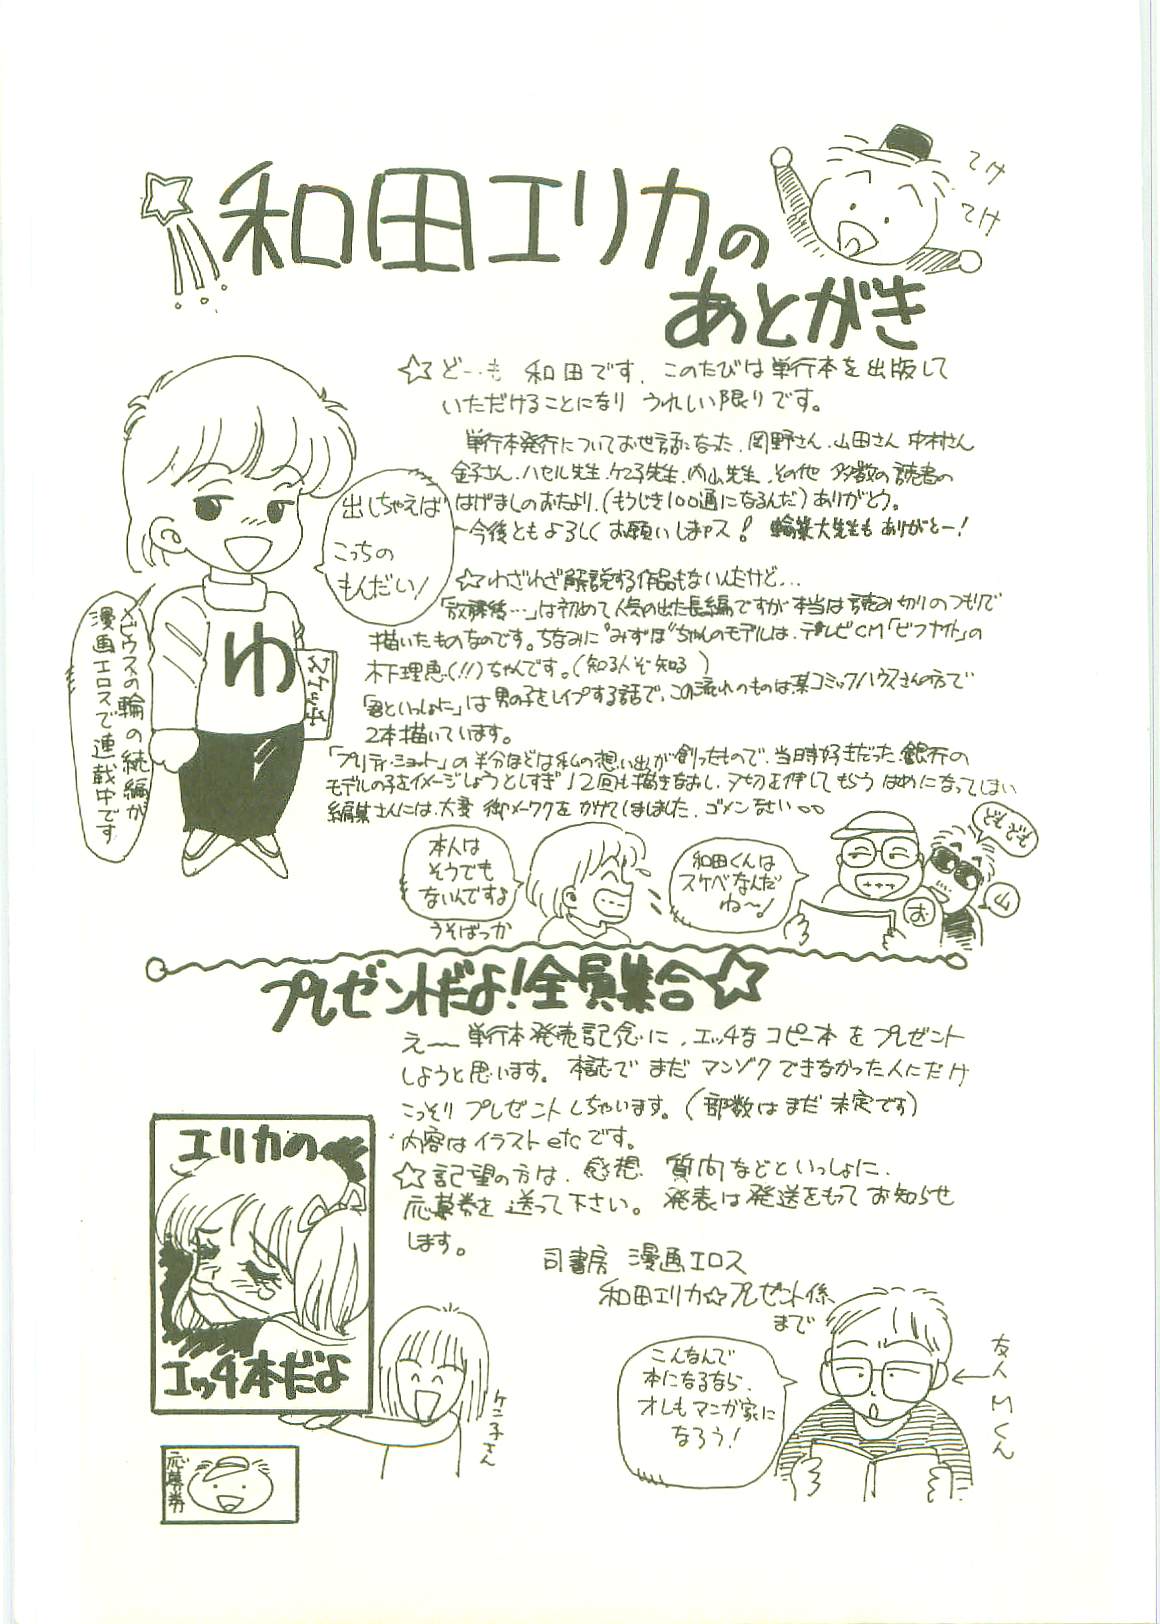 和田エリカの
あとがき
てけ
てけ
☆ど…も 和田です．このたびは単行本を出版して
いただけることになり うれしい限りです。
単行本発行についてお世話になった、岡野さん、山田さん 中村さん
金子さん、ハセル先生、ケン子先生、内山先生、その他 多数の読者の
はげましのおたより、(もうじき100通になるんだ)ありがとう。
〜今後ともよろしく お願いしまャス! 輪葉大先生も ありがとー!
出しちゃえば
こっちの
もんだい!
ゆ
スケッチ
メビウスの輪の続編が
漫画エロスで連載中です
☆わざわざ解説する作品もないんだけど…
「放課後…」は初めて人気の出た長編ですが本当は読み切りのつもりで
描いたものなのです。ちなみに"みずほ"ちゃんのモデルは、テレビCM「ビフナイト」の
木下理恵(!!)ちゃんです。(知る人ぞ知る)
「君といっしょに」は男の子をレイプする話で、この流れのものは某コミックハウスさんの方で
2本描いています。
「プリティ・ショット」の半分ほどは私の想い出が創ったもので、当時好きだった銀行の
モデルの子をイメージしようとしすぎ12回も描きなおし、〆切を伸してもらうはめになってしまい
編集さんには、大変御メーワクをかけてしましました、ゴメンなさい
本人は
そうでも
ないんですよ
うそばっか
和田くんは
スケベなんだ
ね〜!
お
どもども
山
プレゼントだよ!全員集合☆
え〜単行本発売記念に、エッチなコピー本をプレゼント
しようと思います。本誌でまだマンゾクできなかった人にだけ
こっそりプレゼントしちゃいます。(部数はまだ未定です)
内容はイラストetcです。
☆記望の方は、感想 質向などといっしょに、
応募券を送って下さい。発表は発送をもってお知らせ
します。
司書房 漫画エロス
和田エリカ☆プレゼント係
まで
エリカの
エッチ本だよ
ケン子さん
応募券
こんなんで
本になるなら、
オレもマンガ家に
なろう!
友人Mくん